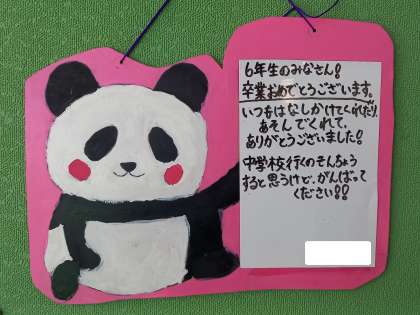 6年生のみなさん!
卒業おめでとうございます。
いつもはなしかけてくれたり、
あそんでくれて、
ありがとうございました!
中学校行くのきんちょう
すると思うけど、がんばって
ください!!